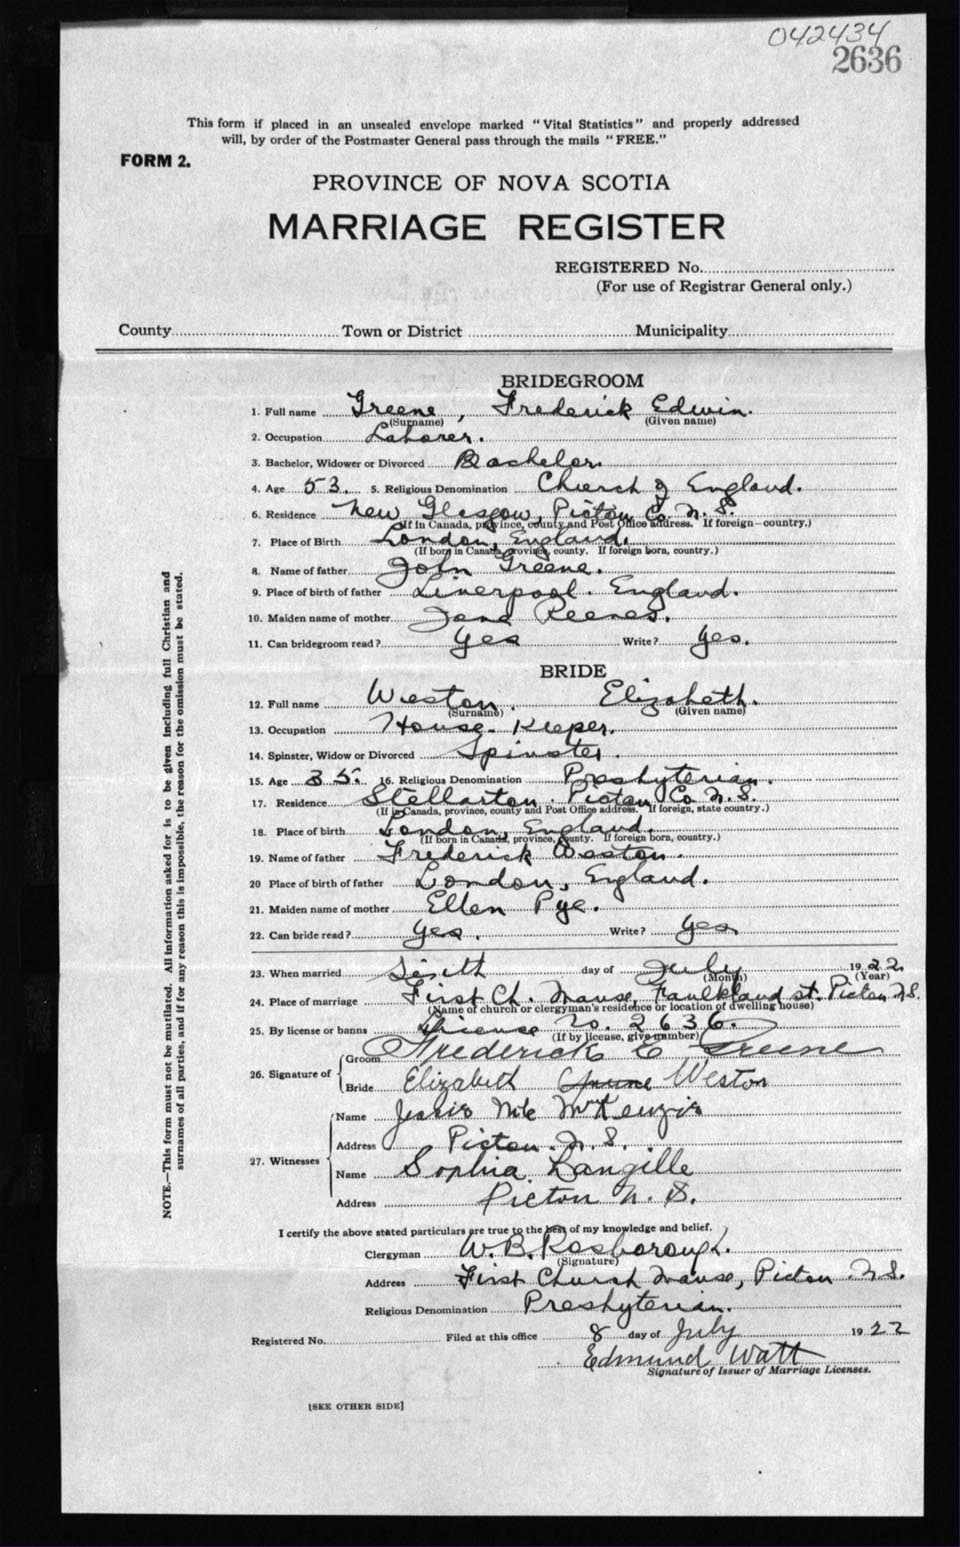 042434
2636
This form if placed in an unsealed envelope marked "Vital Statistics" and properly addressed
will, by order of the Postmaster General pass through the mails "FREE."
FORM 2.
PROVINCE OF NOVA SCOTIA
MARRIAGE REGISTER
REGISTERED No.
(For use of Registrar General only.)
County Town or District Municipality
BRIDEGROOM
1. Full name Greene, Frederick Edwin.
(Surname) (Given name)
2. Occupation Laborer.
3. Bachelor, Widower or Divorced Bachelor.
4. Age 53. 5. Religious Denomination Church of England.
6. Residence New Glasgow, Pictou Co. N. S.
(If in Canada, province, county and Post Office address. If foreign—country.)
7. Place of Birth London, England.
(If born in Canada, province, county. If foreign born, country.)
8. Name of father John Greene.
9. Place of birth of father Liverpool. England.
10. Maiden name of mother Jane Reeves.
11. Can bridegroom read? Yes Write? Yes.
BRIDE
12. Full name Weston, Elizabeth.
(Surname) (Given name)
13. Occupation House-Keeper.
14. Spinster, Widow or Divorced Spinster.
15. Age 35. 16. Religious Denomination Presbyterian.
17. Residence Stellarton. Pictou Co N. S.
(If in Canada, province, county and Post Office address. If foreign, state country.)
18. Place of birth London, England.
(If born in Canada, province, county. If foreign born, country.)
19. Name of father Frederick Weston.
20 Place of birth of father London, England.
21. Maiden name of mother Ellen Pye.
22. Can bride read? Yes. Write? Yes
23. When married Sixth day of July 1922
(Month) (Year)
24. Place of marriage First Ch. Manse, Faulkland St. Pictou N.S.
(Name of church or clergyman's residence or location of dwelling house)
25. By license or banns License No. 2636.
(If by license, give number)
26. Signature of
Groom Frederick E Greene
Bride Elizabeth Weston
27. Witnesses
Name Jessie McKenzie
Address Pictou. N. S.
Name Sophia Langille
Address Pictou N. S.
I certify the above stated particulars are true to the best of my knowledge and belief.
Clergyman W. B. Rosborough.
(Signature)
Address First Church Manse, Pictou N.S.
Religious Denomination Presbyterian.
Registered No. Filed at this office 8 day of July 1922
Edmund Watt
Signature of Issuer of Marriage Licenses.
[SEE OTHER SIDE]
NOTE.—This form must not be mutilated. All information asked for is to be given including full Christian and
surnames of all parties, and if for any reason this is impossible, the reason for the omission must be stated.